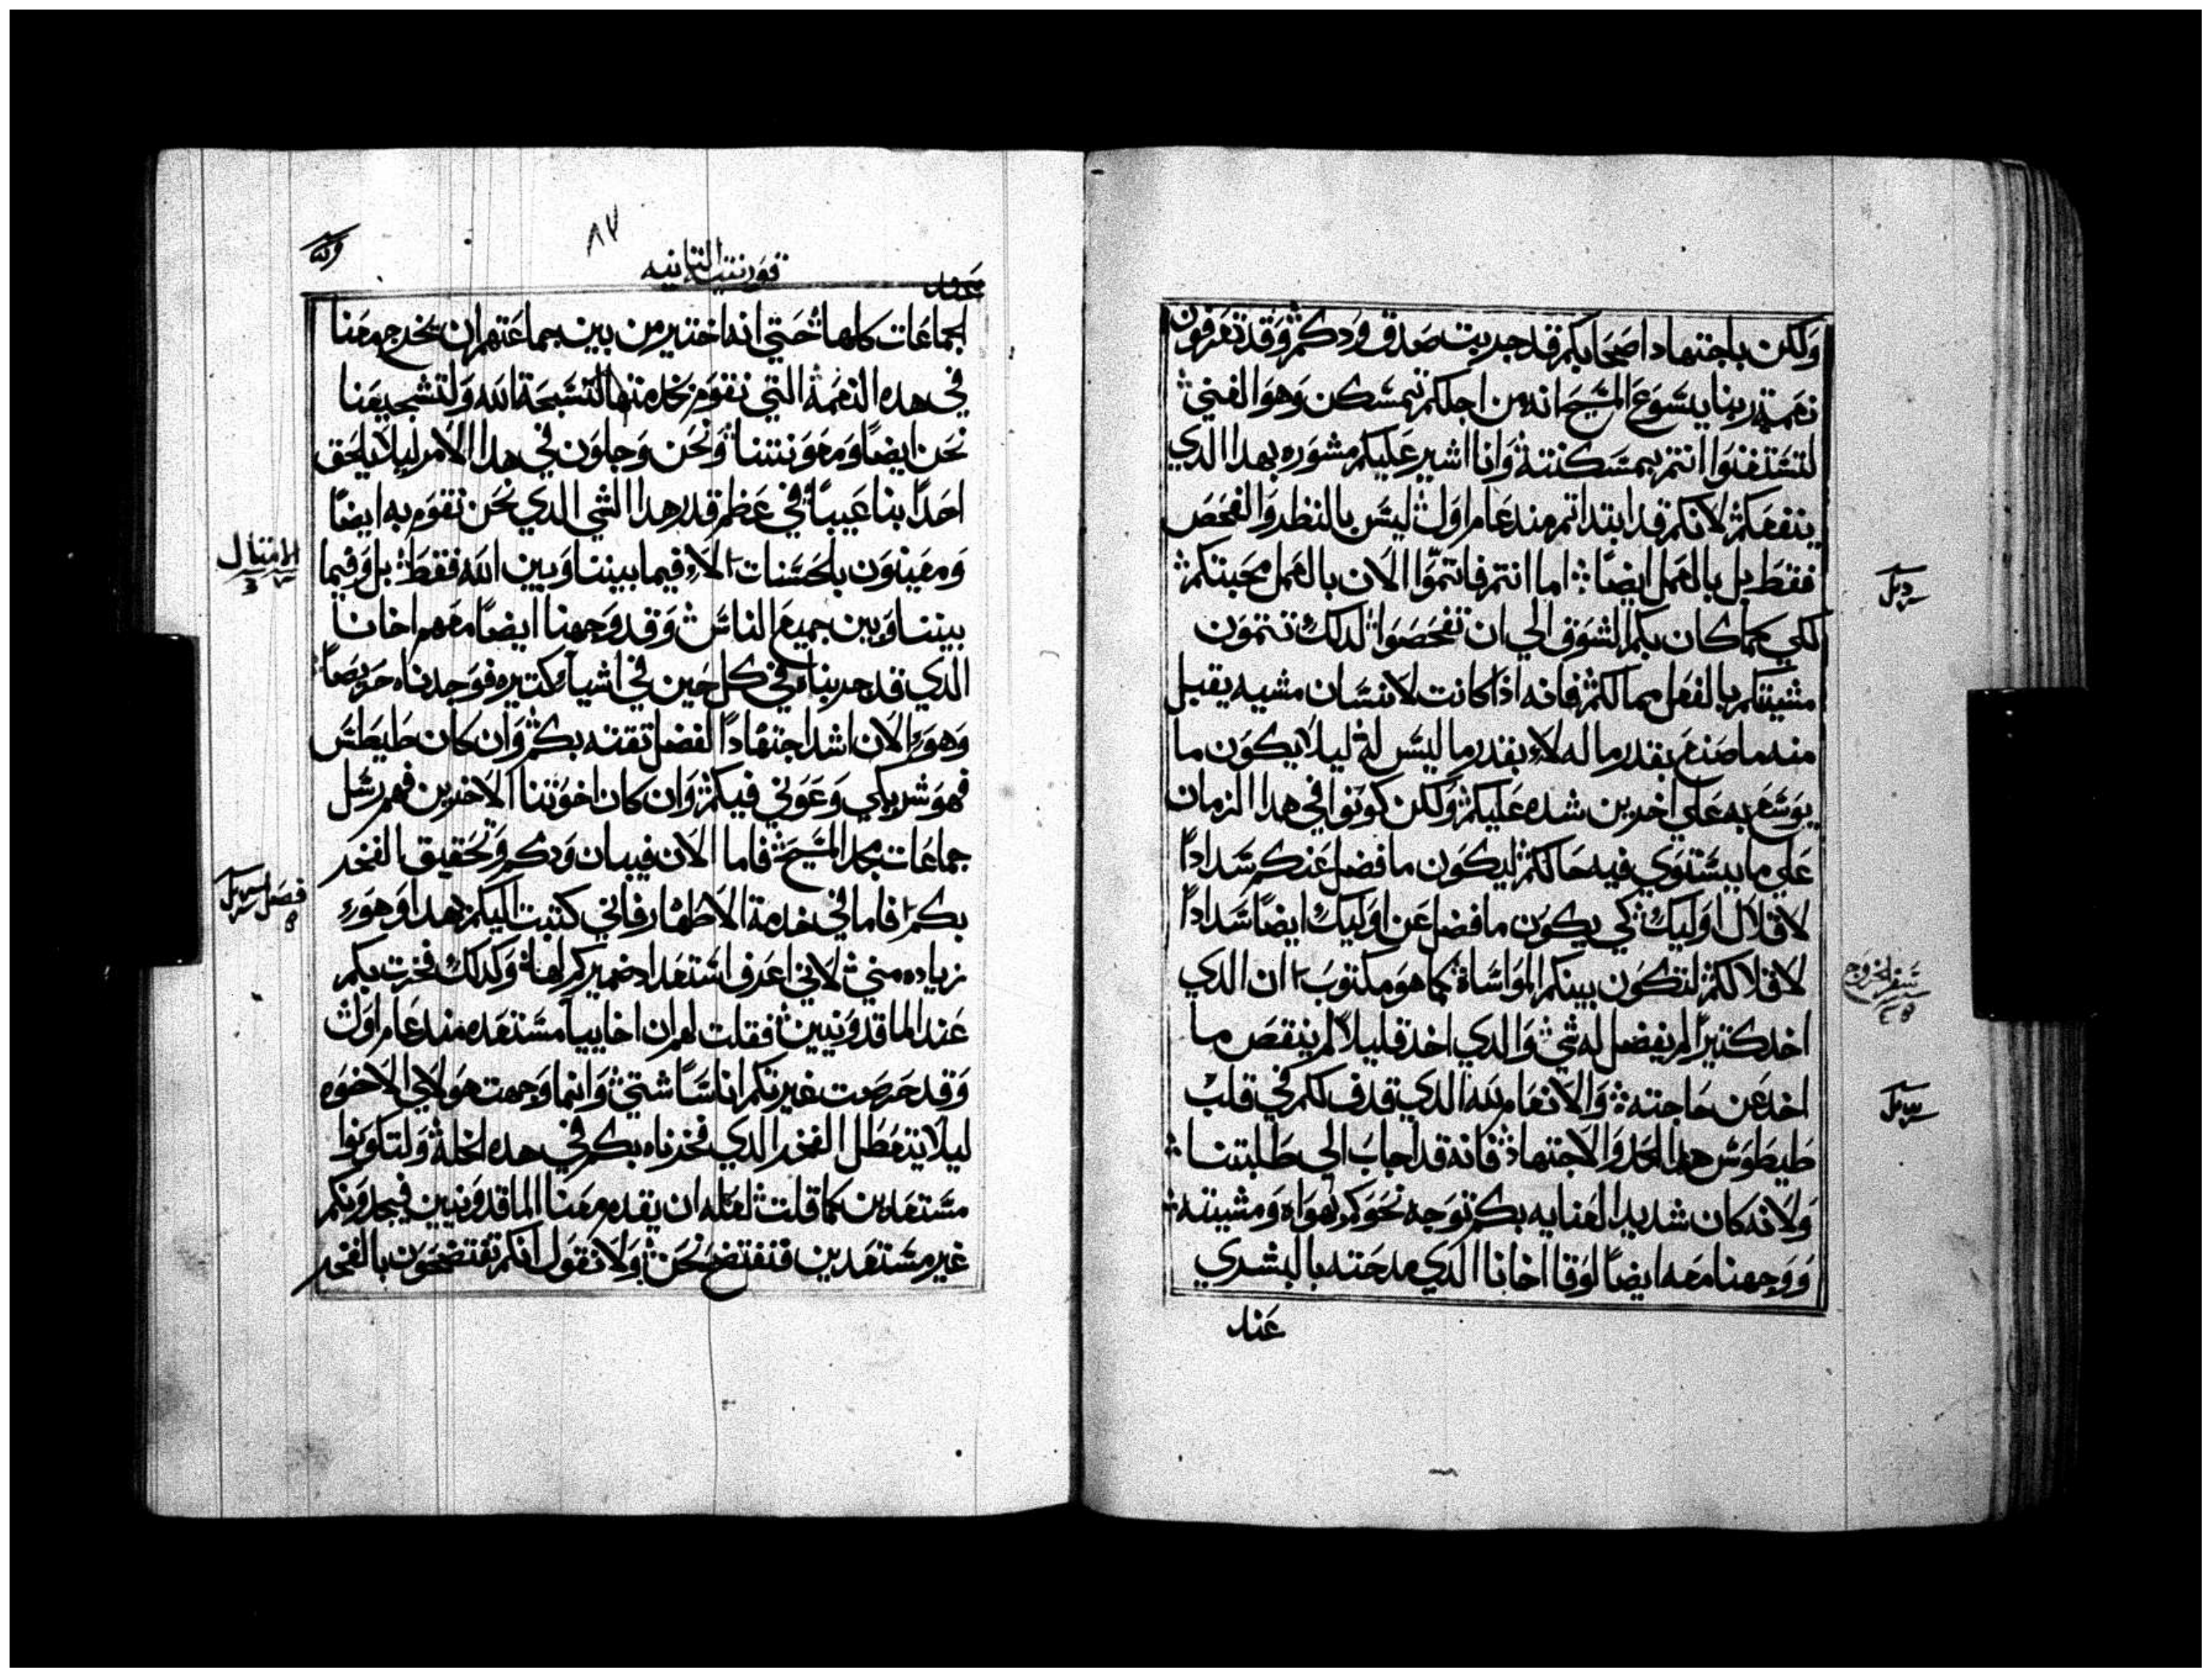 ولكن باجتهاد اصحابكم قد جربت صدق ودكم وقد تعرفون
نعمة ربنا يسوع المسيح انه من اجلكم تمسكن وهو الغني
لتستغنوا انتم بمسكنته وانا اشير عليكم مشوره بهدا الدي
ينفعكم لانكم قد ابتداتم مند عام اول ليس بالنظر والفحص
فقط بل بالعمل ايضا اما انتم فاتموا الان بالعمل محبتكم
لكي كما كان بكم الشوق الي ان تفحصوا لدلك تتمون
مشيتكم بالفعل مما لكم فانه اذا كانت لانسان مشيه يقبل
منه ما صنع بقدر ما له لا بقدر ما ليس له ليلا يكون ما
يوسع به علي اخرين شده عليكم ولكن كونوا في هدا الزمان
علي ما يستوي فيه حالكم ليكون ما فضل عنكم سدادا
لاقلال اوليك كي يكون ما فضل عن اوليك ايضا سدادا
لاقلالكم لتكون بينكم المواساة كما هو مكتوب ان الدي
اخد كتيرا لم يفضل له شي والدي اخد قليلا لم ينقص ما
اخد عن حاجته والانعام لله الدي قدف لكم في قلب
طيطوس هدا الجد والاجتهاد فانه قد اجاب الي طلبتنا
ولانه كان شديد العنايه بكم توجه نحوكم بهواه ومشيته
ووجهنا معه ايضا لوقا اخانا الدي مدحته بالبشري
عند
سفر الخروج
قورنتيه التانيه
٨٧
عند
الجماعات كلها حتي انه اختير من بين جماعتهم ان يخرج معنا
في هده النعمة التي نقوم نخدمتها لتسبحة الله ولتشجيعنا
نحن ايضا ومعونتنا ونحن وجلون في هدا الامر ليلا يلحق
احدا بنا عيبا في عظم قدر هدا الشي الدي نحن نقوم به ايضا
ومعينون بلحسنات لا فيما بيننا وبين الله فقط بل وفيما
بيننا وبين جميع الناس وقد وجهنا ايضا معهم اخانا
الدي قد جربناه في كل حين في اشيا كتيره فوجدناه حريصا
وهو الان اشد اجتهادا لفضل تقته بكم وان كان طيطس
فهو شريكي وعوني فيكم وان كان اخوتنا الاخرين فهم رسل
جماعات مجد المسيح فاما الان فبيان ودكم وتحقيق الفخر
بكم فاما في خدمة الاطهار فاني كتبت اليكم بهدا وهو
زياده مني لاني اعرف استعداد ضميركم لها وكدلك فخرت بكم
عند الماقدونيين فقلت لهم ان اخاييا مستعده مند عام اول
وقد حرصت غيرتكم اناسا شتي وانما وجهت هولاي الاخوه
ليلا يتعطل الفخر الدي فخرناه بكم في هده الخلة ولتكونوا
مستعدين كما قلت لعله ان يقدم معنا الماقدونيين فيجدونكم
غير مستعدين فنفتضح نحن ولا نقول انكم تفتضحون بالفخر
الامتال
٣
فصل
٥